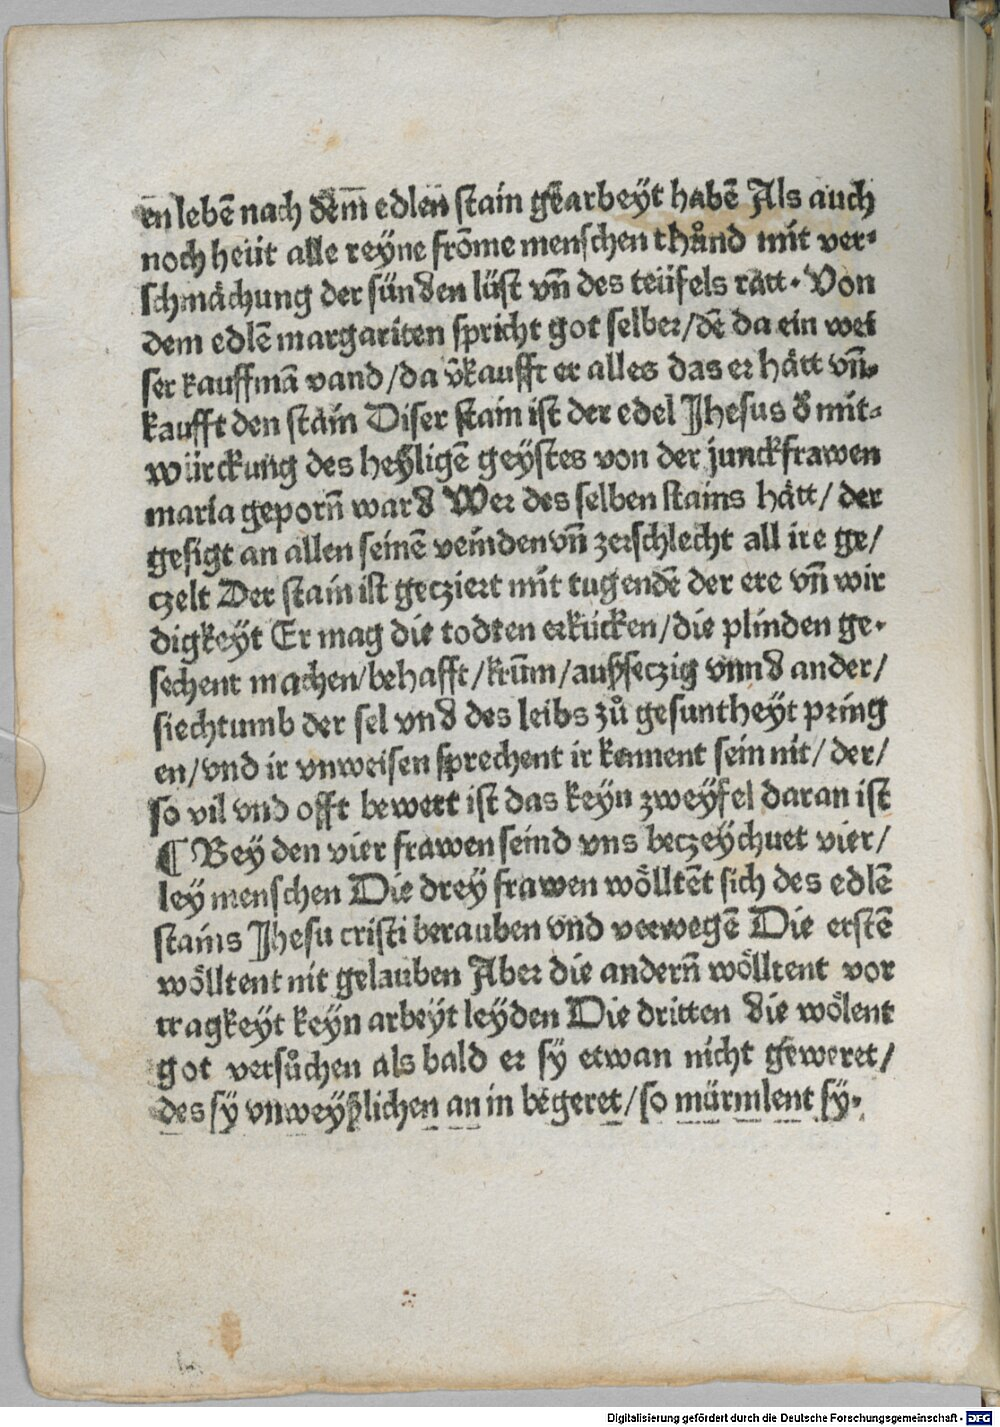 en lebē nach dem̅ edlen stain gearbeyt habē Als auch
noch heüt alle reyne frōme menschen thůnd mit ver⸗
schmächung der sünden lüst vn̄ des teüfels rätt. Von
dem edlē margariten spricht got selber/dē da ein wei
ser kauffmā vand/da v̄kaufft er alles das er hätt vn̄⸗
kaufft den stain Diser stain ist der edel Jhesus d̓ mit⸗
würckung des heyligē geystes von der junckfrawen
maria geporn̄ ward Wer des selben stains hätt/ der
gesigt an allen seinē veinden vn̄ zerschlecht all ire ge/
czelt Der stain ist gecziert mit tugendē der ere vn̄ wir
digkeyt Er mag die todten erkücken/die plinden ge⸗
sechent machen/behafft/krum̄/auszseczig vnnd ander/
siechtumb der sel vnd des leibs zů gesuntheyt pring
en/vnd ir vnweisen sprechent ir kennent sein nit/ der/
so vil vnd offt bewert ist das keyn zweyfel daran ist
¶ Bey den vier frawen seind vns beczeychnet vier/
ley menschen Die drey frawen wölltēt sich des edlē
stains Jhesu cristi berauben vnd verwegē Die erstē
wölltent nit gelauben Aber die andern̄ wölltent vor
tragkeyt keyn arbeyt leyden Die dritten die wölent
got versůchen als bald er sy etwan nicht geweret/
des sy vnweyszlichen an in begeret/so mürmlent sy.
Digitalisierung gefördert durch die Deutsche Forschungsgemeinschaft - DFG